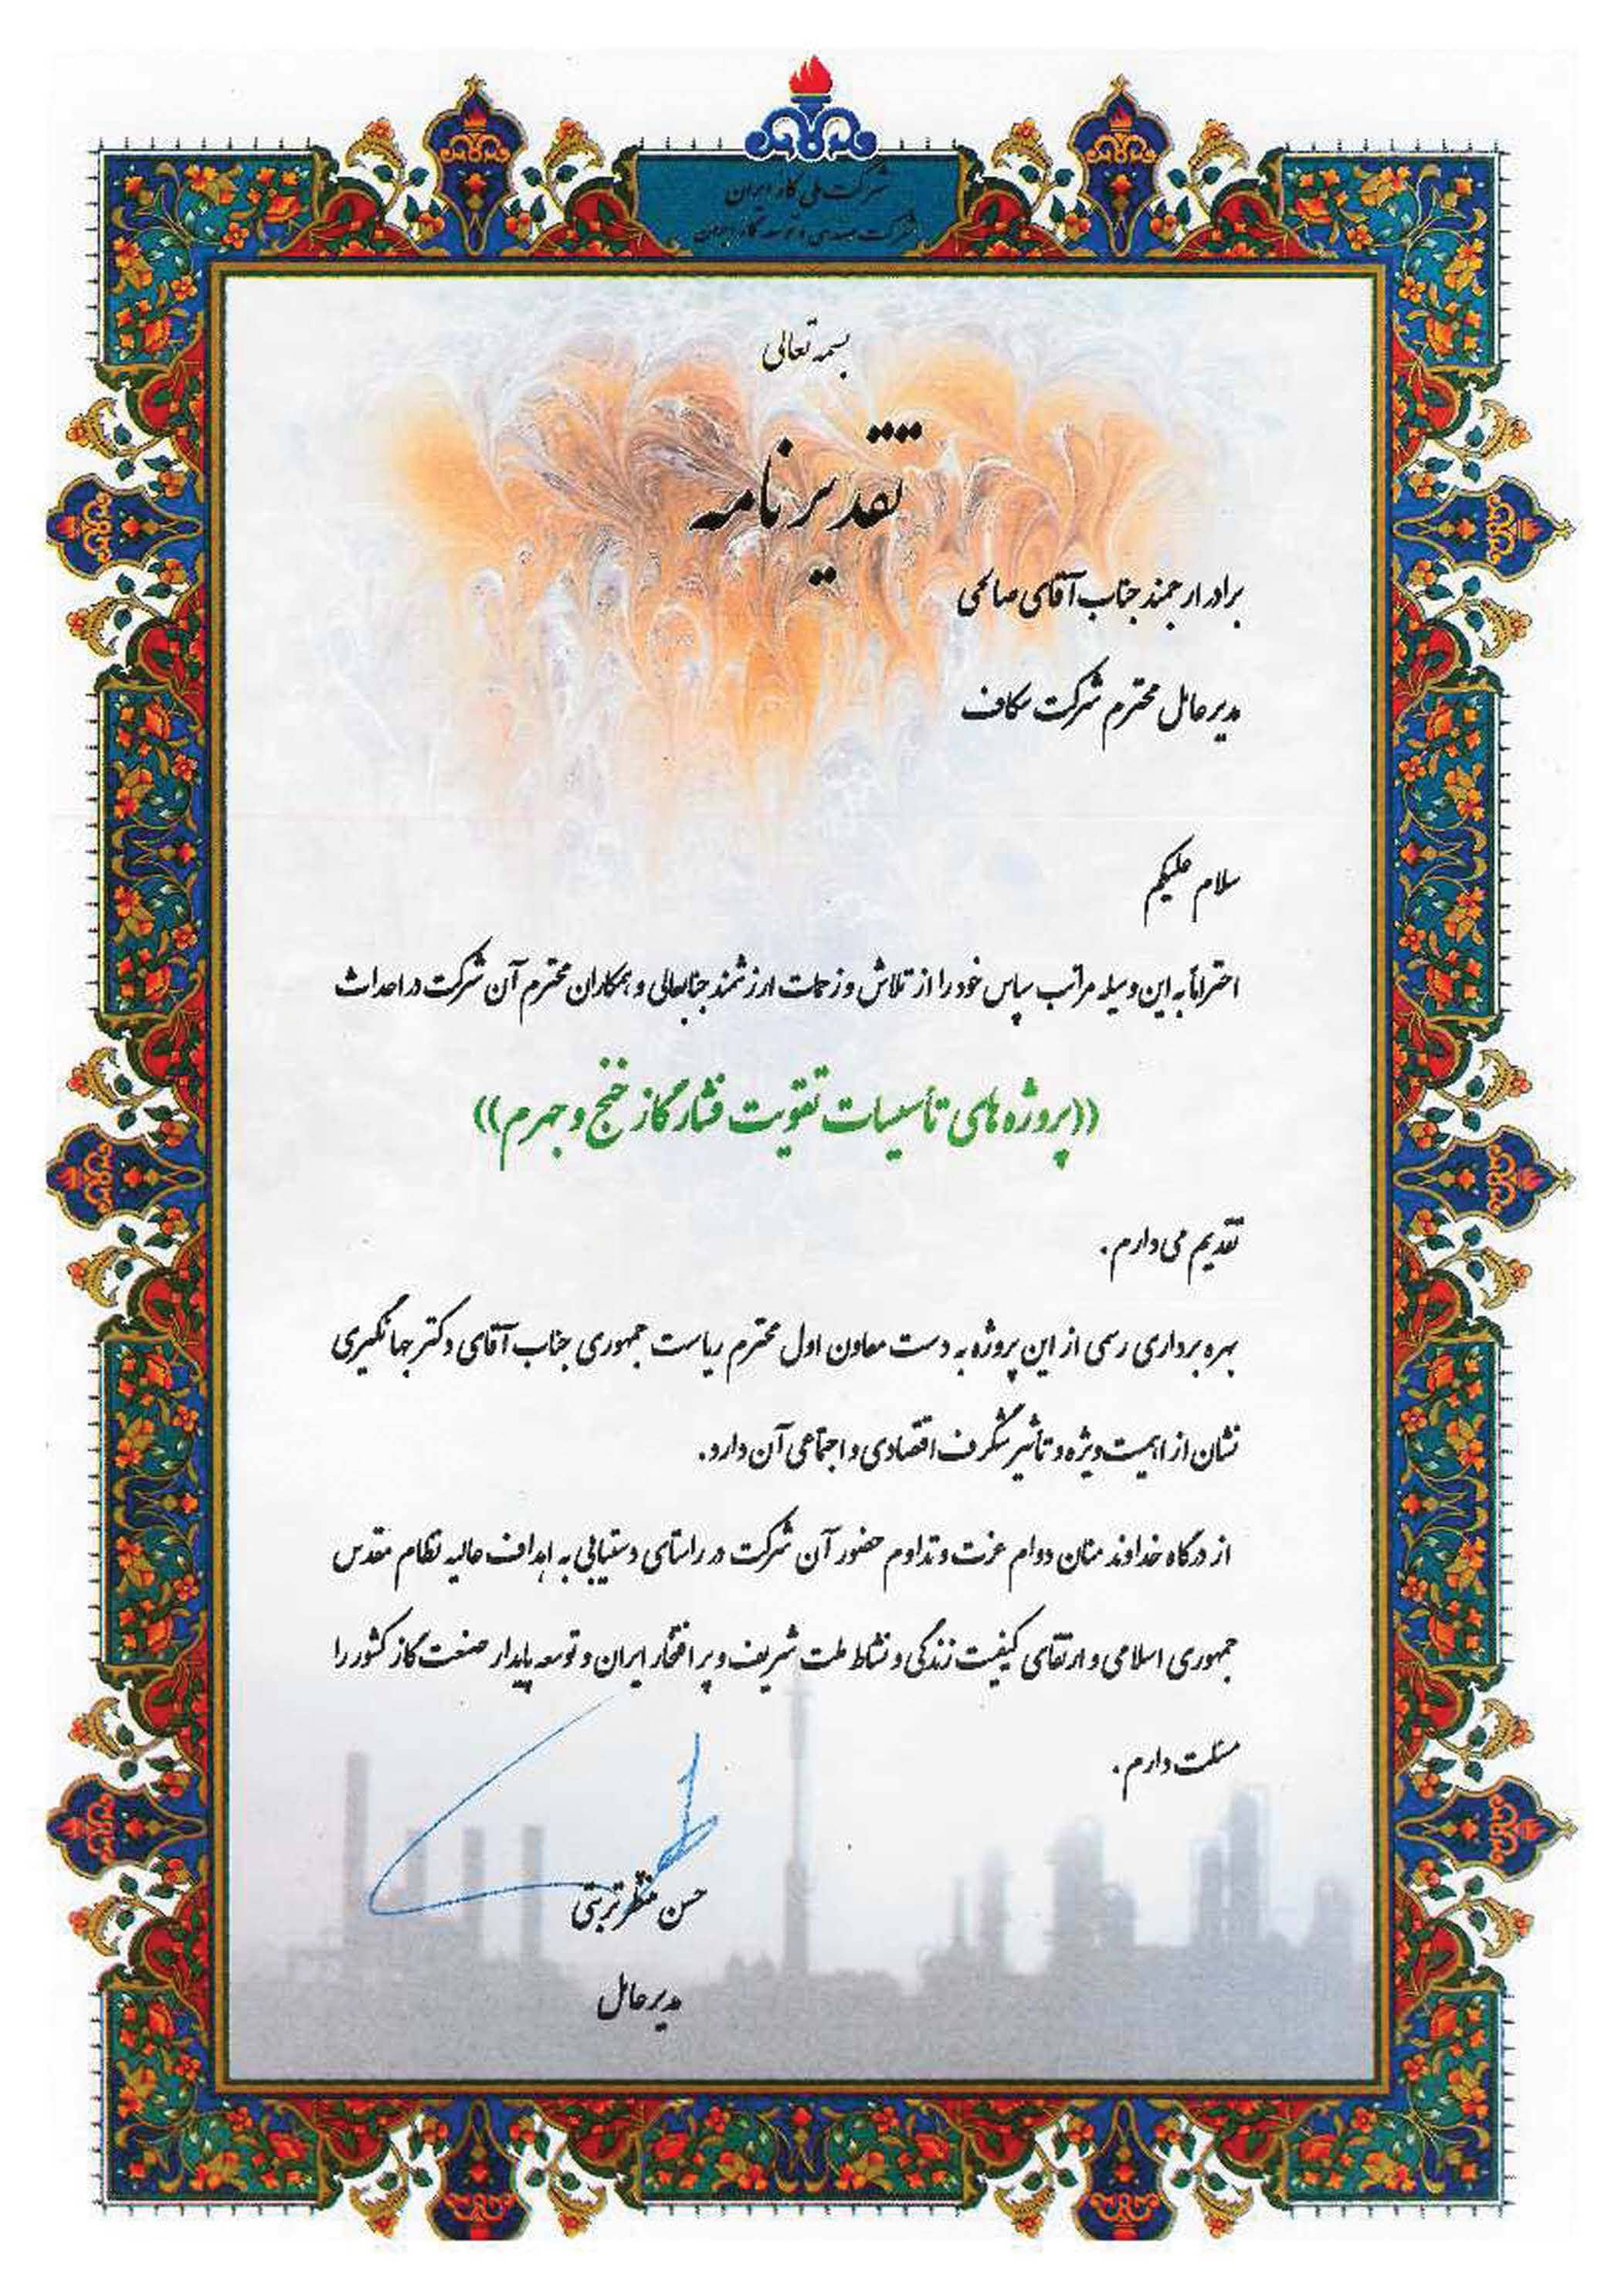 شرکت ملی گاز ایران
شرکت مهندسی و توسعه گاز ایران
بسمه تعالی
تقدیرنامه
برادر ارجمند جناب آقای صالحی
مدیرعامل محترم شرکت سکاف
سلام علیکم
احتراماً به این وسیله مراتب سپاس خود را از تلاش و زحمات ارزشمند جنابعالی و همکاران محترم آن شرکت در احداث
((پروژه های تأسیسات تقویت فشار گاز خنج و جهرم))
تقدیم می دارم.
بهره برداری رسمی از این پروژه به دست معاون اول محترم ریاست جمهوری جناب آقای دکتر جهانگیری
نشان از اهمیت ویژه و تأثیر شگرف اقتصادی و اجتماعی آن دارد.
از درگاه خداوند منان دوام عزت و تداوم حضور آن شرکت در راستای دستیابی به اهداف عالیه نظام مقدس
جمهوری اسلامی و ارتقای کیفیت زندگی و نشاط ملت شریف و پر افتخار ایران و توسعه پایدار صنعت گاز کشور را
مسئلت دارم.
حسن منتظر تربتی
مدیرعامل